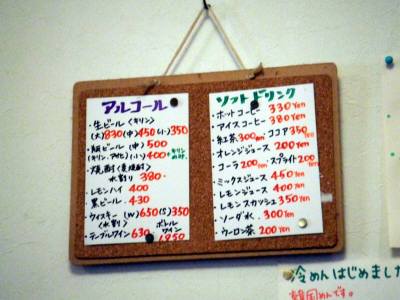 アルコール
・生ビール〈キリン〉
(大)830(中)450(小)350
・瓶ビール(中)500
(キリン、アサヒ)(小)400
・焼酎(麦焼酎)
水割り 380-
・レモンハイ 400
・黒ビール 430
・ウイスキー(W)650(S)350
(水割り)
・テーブルワイン 630
ボトルワイン
1850
ソフトドリンク
・ホットコーヒー 330yen
・アイスコーヒー 380yen
・紅茶300yen、ココア350yen
・オレンジジュース 200yen
・コーラ200yen、スプライト200yen
・ミックスジュース 450yen
・レモンジュース 400yen
・レモンスカッシュ 350yen
・ソーダ水、300yen
・ウーロン茶 200yen
冷めんはじめました
韓国めんです。